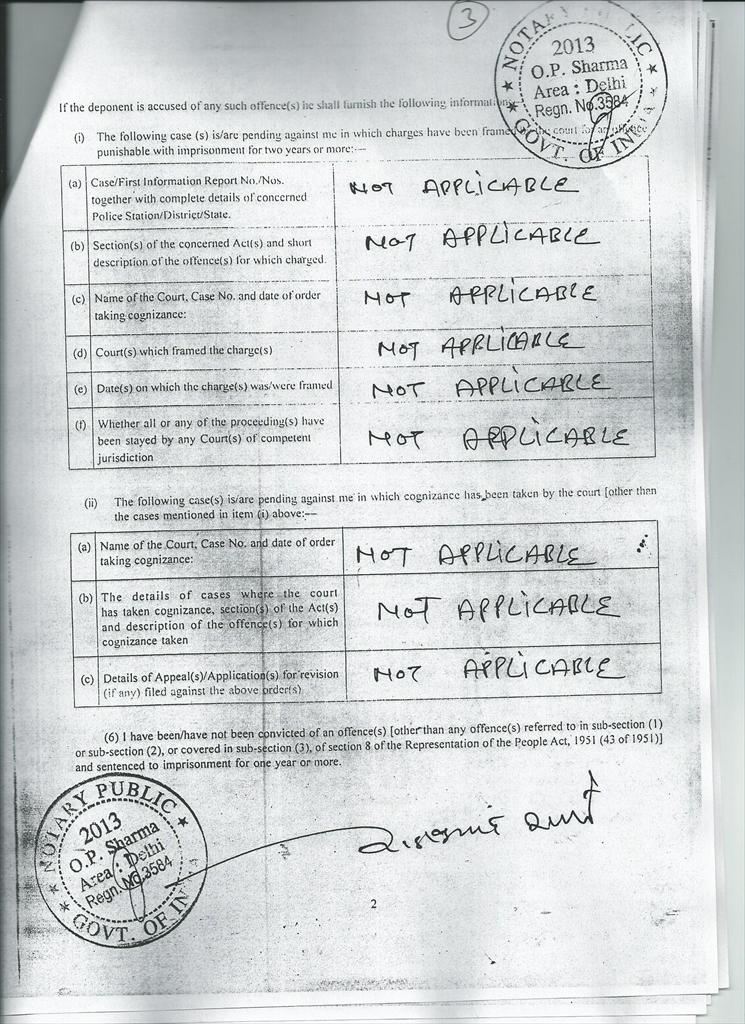 3
NOTARY PUBLIC
2013
O.P. Sharma
Area : Delhi
Regn. No.3584
GOVT. OF INDIA
If the deponent is accused of any such offence(s) he shall furnish the following information:
(i) The following case (s) is/are pending against me in which charges have been framed by the court for an offence
punishable with imprisonment for two years or more:—
(a) Case/First Information Report No./Nos. NOT APPLICABLE
together with complete details of concerned
Police Station/District/State.
(b) Section(s) of the concerned Act(s) and short NOT APPLICABLE
description of the offence(s) for which charged.
(c) Name of the Court, Case No. and date of order NOT APPLICABLE
taking cognizance:
(d) Court(s) which framed the charge(s) NOT APPLICABLE
(e) Date(s) on which the charge(s) was/were framed NOT APPLICABLE
(f) Whether all or any of the proceeding(s) have NOT APPLICABLE
been stayed by any Court(s) of competent
jurisdiction
(ii) The following case(s) is/are pending against me in which cognizance has been taken by the court [other than
the cases mentioned in item (i) above:—
(a) Name of the Court, Case No. and date of order NOT APPLICABLE
taking cognizance:
(b) The details of cases where the court NOT APPLICABLE
has taken cognizance, section(s) of the Act(s)
and description of the offence(s) for which
cognizance taken
(c) Details of Appeal(s)/Application(s) for revision NOT APPLICABLE
(if any) filed against the above order(s)
(6) I have been/have not been convicted of an offence(s) [other than any offence(s) referred to in sub-section (1)
or sub-section (2), or covered in sub-section (3), of section 8 of the Representation of the People Act, 1951 (43 of 1951)]
and sentenced to imprisonment for one year or more.
NOTARY PUBLIC
2013
O.P. Sharma
Area : Delhi
Regn. No.3584
GOVT. OF INDIA
2